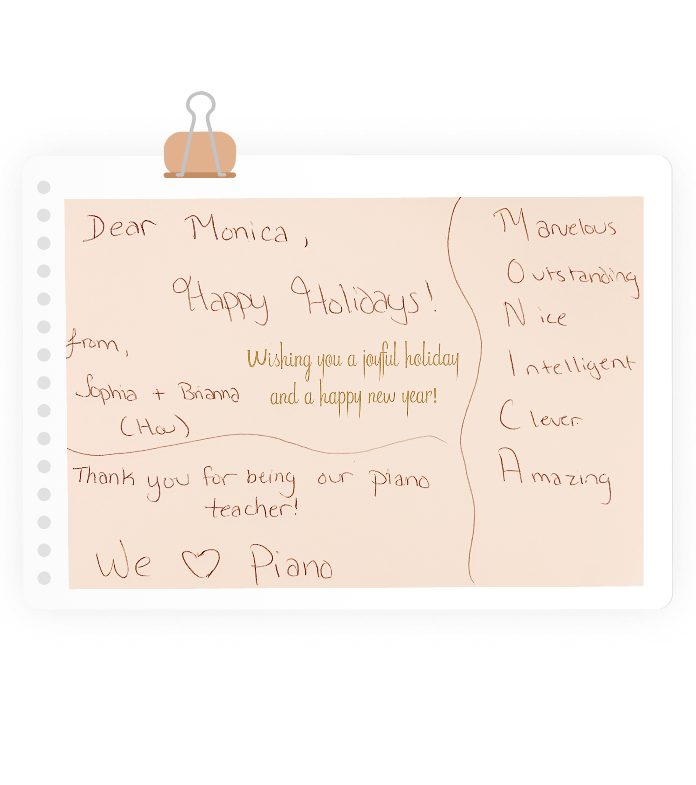 Dear Monica,
Happy Holidays!
from,
Sophia + Brianna
(Hou)
Wishing you a joyful holiday
and a happy new year!
Thank you for being our piano
teacher!
We ♡ Piano
Marvelous
Outstanding
Nice
Intelligent
Clever
Amazing